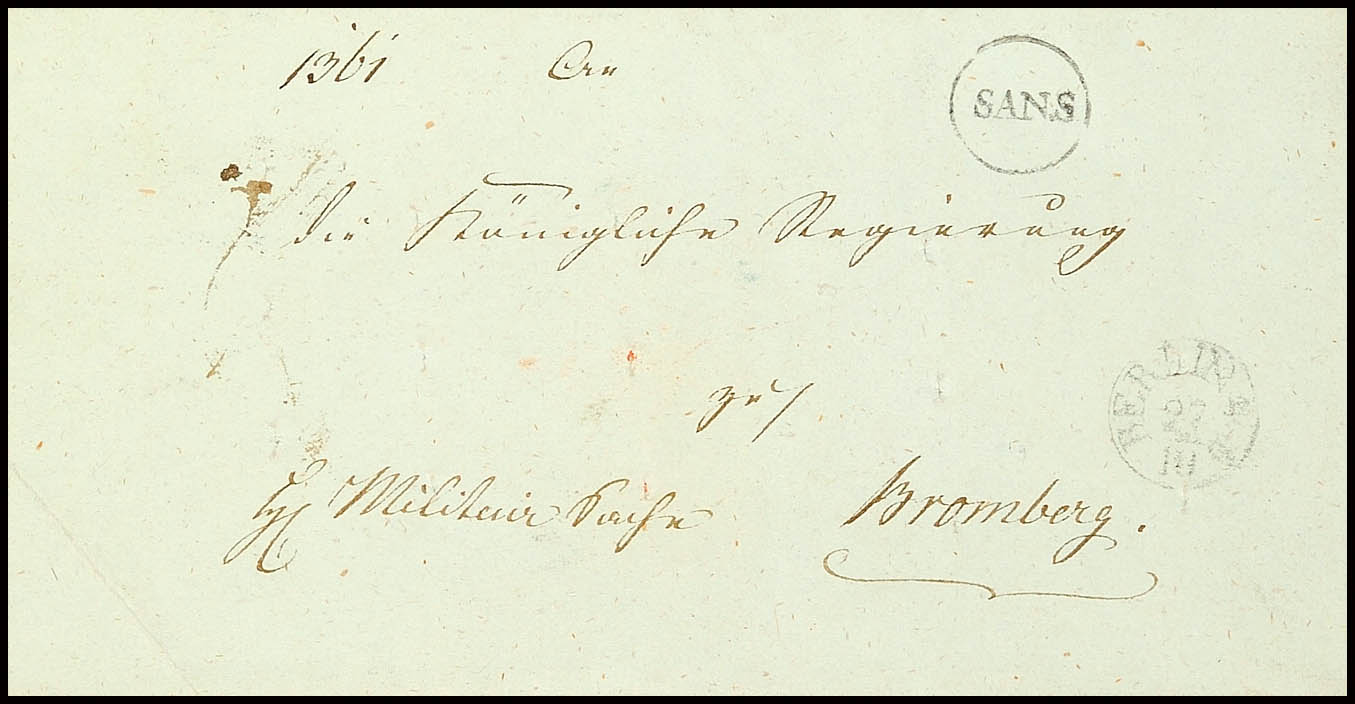 1361 An
SANS
die Königliche Regierung
zu
BERLIN
27
10
Militair Sache Bromberg.